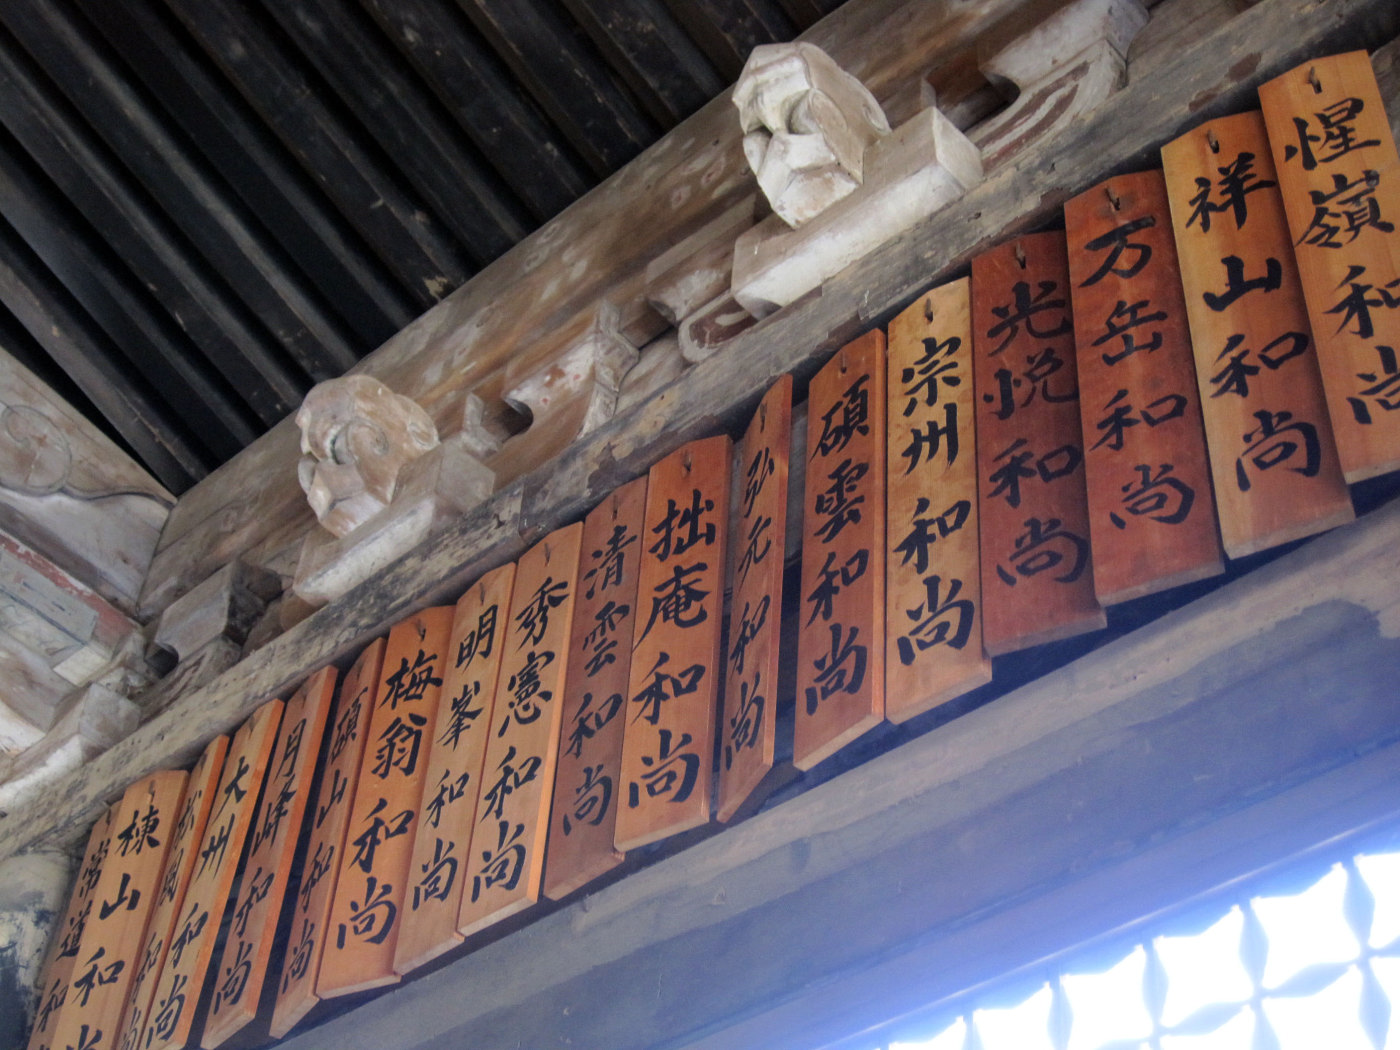 惺嶺和尚
祥山和尚
万岳和尚
光悦和尚
宗州和尚
碩雲和尚
弘元和尚
拙庵和尚
清雲和尚
秀憲和尚
明峯和尚
梅翁和尚
碩山和尚
月峰和尚
大州和尚
和尚
棟山和尚
常道和